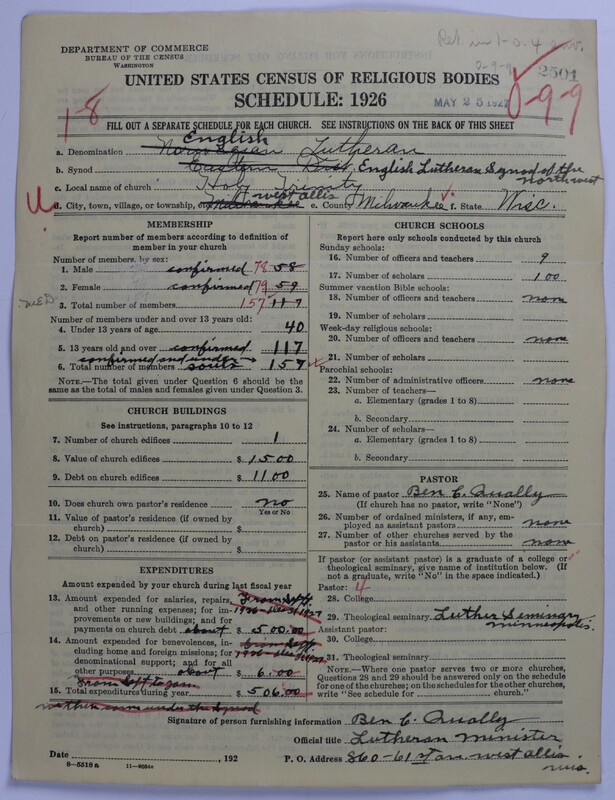 Ret. in 1-0.4 env.
DEPARTMENT OF COMMERCE
BUREAU OF THE CENSUS
WASHINGTON
2-9-9
2501
UNITED STATES CENSUS OF RELIGIOUS BODIES
SCHEDULE: 1926
MAY 25 1927
-9-9
1-8
FILL OUT A SEPARATE SCHEDULE FOR EACH CHURCH. SEE INSTRUCTIONS ON THE BACK OF THIS SHEET
English
a. Denomination Norwegian Lutheran
b. Synod Eastern Dist. English Lutheran Synod of the
Northwest
c. Local name of church Holy Trinity
West Allis
U
d. City, town, village, or township, Milwaukee e. County Milwaukee f. State Wisc.
MEMBERSHIP
Report number of members according to definition of
member in your church
Number of members, by sex:
1. Male confirmed 78 58
2. Female confirmed 79 59
3. Total number of members 157 117
Number of members under and over 13 years old:
4. Under 13 years of age 40
5. 13 years old and over confirmed 117
confirmed and under
6. Total number of members souls 157
NOTE.—The total given under Question 6 should be
the same as the total of males and females given under Question 3.
CHURCH BUILDINGS
See instructions, paragraphs 10 to 12
7. Number of church edifices 1
8. Value of church edifices $ 1500
9. Debt on church edifices $ 1100
10. Does church own pastor's residence no
Yes or No
11. Value of pastor's residence (if owned by
church) $
12. Debt on pastor's residence (if owned by
church) $
EXPENDITURES
Amount expended by your church during last fiscal year
13. Amount expended for salaries, repairs, From Sept
and other running expenses; for im-
provements or new buildings; and for
payments on church debt about $ 500.00
14. Amount expended for benevolences, in-
cluding home and foreign missions; for
denominational support; and for all
other purposes about $ 6.00
From Sept to Jan
15. Total expenditures during year $ 506.00
CHURCH SCHOOLS
Report here only schools conducted by this church
Sunday schools:
16. Number of officers and teachers 9
17. Number of scholars 100
Summer vacation Bible schools:
18. Number of officers and teachers none
19. Number of scholars
Week-day religious schools:
20. Number of officers and teachers none
21. Number of scholars
Parochial schools:
22. Number of administrative officers none
23. Number of teachers—
a. Elementary (grades 1 to 8)
b. Secondary
24. Number of scholars—
a. Elementary (grades 1 to 8)
b. Secondary
PASTOR
25. Name of pastor Ben C. Qually
(If church has no pastor, write "None")
26. Number of ordained ministers, if any, em-
ployed as assistant pastors none
27. Number of other churches served by the
pastor or his assistants none
If pastor (or assistant pastor) is a graduate of a college or
theological seminary, give name of institution below. (If
not a graduate, write "No" in the space indicated.)
Pastor: 4
28. College
29. Theological seminary Luther Seminary
Minneapolis.
Assistant pastor:
30. College
31. Theological seminary
NOTE.—Where one pastor serves two or more churches,
Questions 28 and 29 should be answered only on the schedule
for one of the churches; on the schedules for the other churches,
write "See schedule for church."
Signature of person furnishing information Ben C. Qually
Official title Lutheran Minister
Date , 192 P. O. Address 860-61st Ave West Allis
Wis.
8-5518a